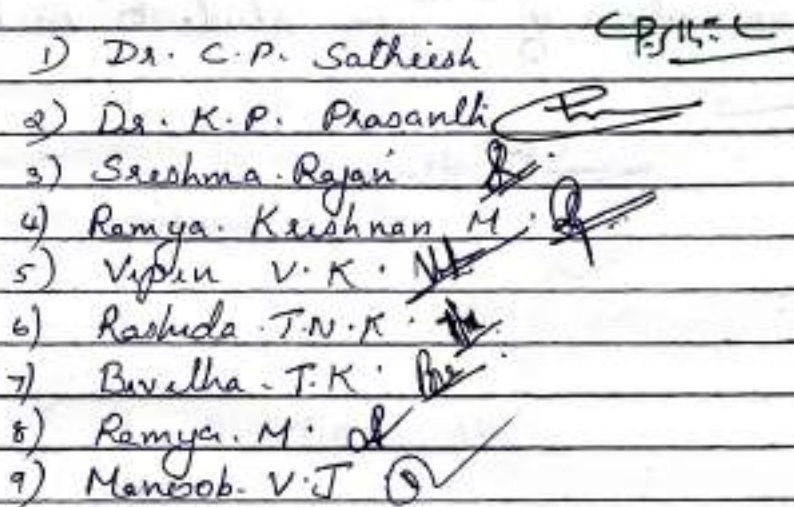 1) Dr. C.P. Satheesh
2) Dr. K.P. Prasanth
3) Sreshma. Rajan
4) Ramya. Krishnan M.
5) Vipin V.K.
6) Rashida. T.N.K.
7) T.K.
8) Ramya. M.
9) V.J